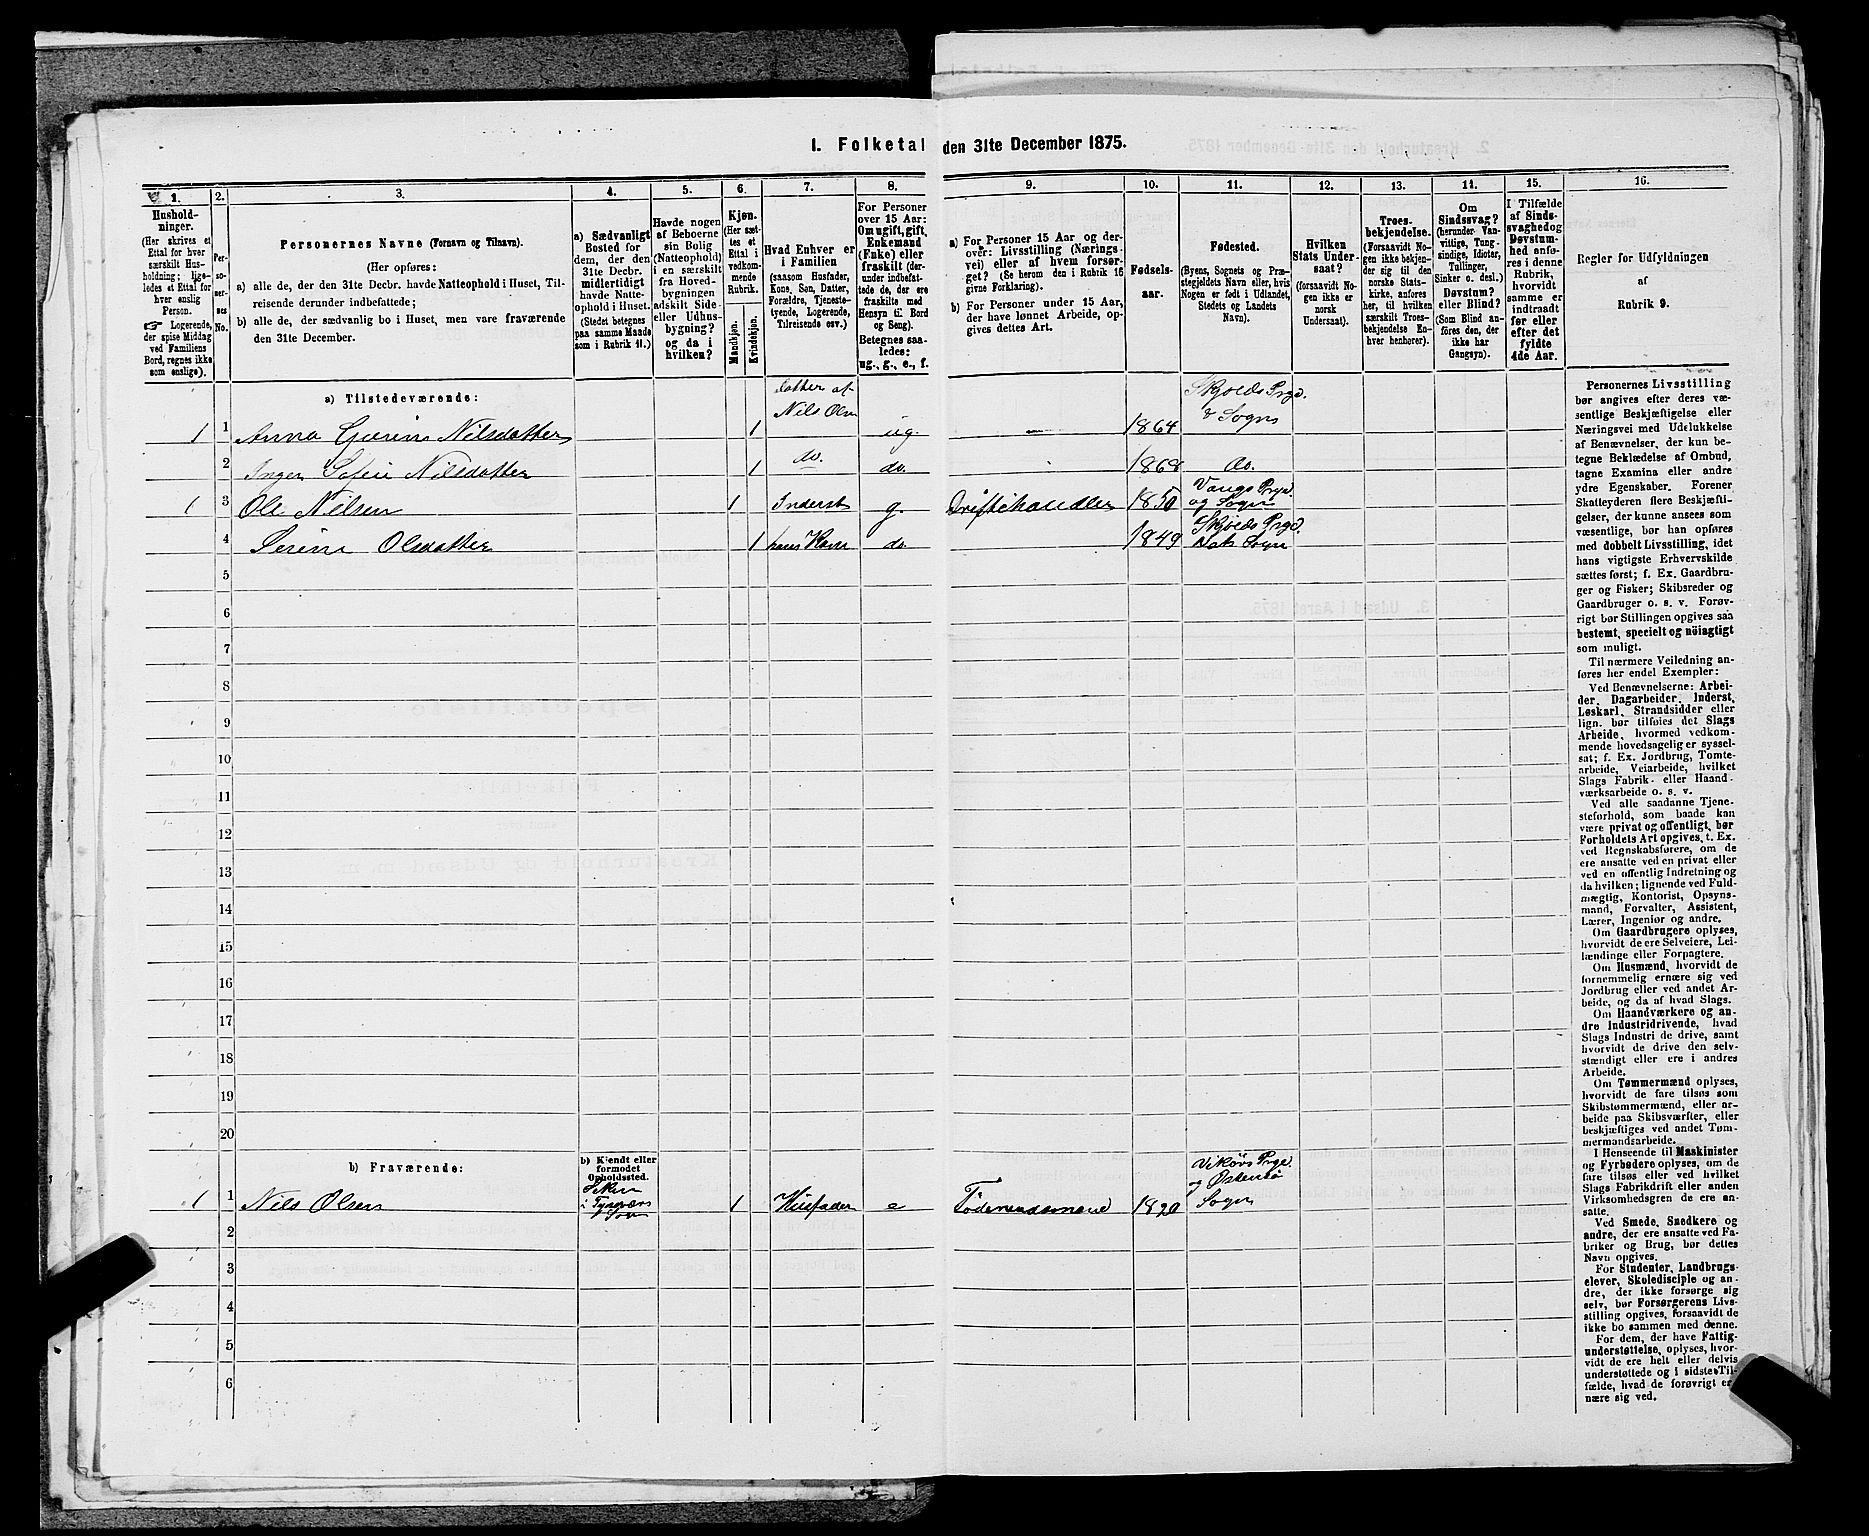 1. Folketal den 31te December 1875.
1.
Hushold-
ninger.
(Her skrives et
Ettal for hver
særskilt Hus-
holdning; lige-
ledes et Ettal for
hver enslig
Person.
☞ Logerende,
der spise Middag
ved Familiens
Bord, regnes ikke
som enslige).
2.
Per-
so-
ner-
nes
No.
3.
Personernes Navne (Fornavn og Tilnavn).
(Her opføres:
a) alle de, der den 31te Decbr. havde Natteophold i Huset, Til-
reisende derunder indbefattede;
b) alle de, der sædvanlig bo i Huset, men vare fraværende
den 31te December.
4.
a) Sædvanligt
Bosted for
dem, der den
31te Decbr.
midlertidigt
havde Natte-
ophold i Huset.
(Stedet betegnes
paa samme Maade
som i Rubrik 11.)
5.
Havde nogen
af Beboerne
sin Bolig
(Natteophold)
i en særskilt
fra Hoved-
bygningen
adskilt Side-
eller Udhus-
bygning?
og da i
hvilken?
6.
Kjøn.
(Her sæt-
tes et
Ettal i
vedkom-
mende
Rubrik.
Mandkjøn.
Kvindekjøn.
7.
Hvad Enhver er
i Familien
(saasom Husfader,
Kone, Søn, Datter,
Forældre, Tjeneste-
tyende, Logerende,
Tilreisende osv.)
8.
For Personer
over 15 Aar:
Om ugift, gift,
Enkemand
(Enke) eller
fraskilt (der-
under indbefat-
tede de, der ere
fraskilte med
Hensyn til Bord
og Seng).
Betegnes saa-
ledes:
ug., g., e., f.
9.
a) For Personer 15 Aar og der-
over: Livsstilling (Nærings-
vei) eller af hvem forsør-
get? (Se herom den i Rubrik 16
givne Forklaring).
b) For Personer under 15 Aar,
der have lønnet Arbeide, op-
gives dettes Art.
10.
Fødsels-
aar.
11.
Fødested.
(Byens, Sognets og Præ-
stegjeldets Navn eller, hvis
Nogen er født i Udlandet,
Stedets og Landets
Navn).
12.
Hvilken
Stats Under-
saat?
(forsaavidt No-
gen ikke er
norsk
Undersaat).
13.
Troes-
bekjendelse.
(Forsaavidt No-
gen ikke bekjen-
der sig til den
norske Stats-
kirke, anføres
her, til hvilken
særskilt Troes-
bekjendelse En-
hver henhører).
14.
Om
Sindssvag?
(herunder Van-
vittige, Tung-
sindige, Idioter,
Tullinger,
Sinker o. desl.)
Døvstum?
eller Blind?
(Som Blind an-
føres den, der
ikke har
Gangsyn).
15.
I Tilfælde
af Sinds-
svaghed og
Døvstum-
hed anfø-
res i denne
Rubrik,
hvorvidt
samme er
indtraadt
før eller
efter det
fyldte
4de Aar.
16.
Regler for Udfyldningen
af
Rubrik 9.
a) Tilstedeværende:
1 1 Anna Nilsdatter 1 datter af Nils Olsen ug. 1864 Skjolds Prgd. & Sogn
2 Nilsdatter 1 do. do. 1868 do.
1 3 Ole Nilsen 1 Inderst g. Driftehandler 1850 Vangs Prgd. og Sogn
4 Serine Olsdatter 1 hans Kone do. 1849 Skjolds Prgd. Sogn
5
6
7
8
9
10
11
12
13
14
15
16
17
18
19
20
b) Fraværende:
b) Kjendt eller
formodet
Opholdssted.
1 1 Nils Olsen i Tysvær 1 Husfader e 1820 Vikørs Prgd. og Østensø Sogn
2
3
4
5
6
Personernes Livsstilling
bør angives efter deres væ-
sentlige Beskjæftigelse eller
Næringsvei med Udelukkelse
af Benævnelser, der kun be-
tegne Beklædelse af Ombud,
tagne Examina eller andre
ydre Egenskaber. Forener
Skatteyderen flere Beskjæfti-
gelser, der kunne ansees som
væsentlige, bør han opføres
med dobbelt Livsstilling, idet
hans vigtigste Erhvervskilde
sættes først; f. Ex. Gaardbru-
ger og Fisker; Skibsreder og
Gaardbruger o. s. v. Forøv-
rigt bør Stillingen opgives saa
bestemt, specielt og nøiagtigt
som muligt.
Til nærmere Veiledning an-
føres her endel Exempler:
Ved Benævnelserne: Arbei-
der, Dagarbeider, Inderst,
Løskarl, Strandsidder eller
lign. bør tilføies det Slags
Arbeide, hvormed vedkom-
mende hovedsagelig er syssel-
sat; f. Ex. Jordbrug, Tomte-
arbeide, Veiarbeide, hvilket
Slags Fabrik- eller Haand-
værksarbeide o. s. v.
Ved alle saadanne Tjene-
steforhold, som baade kan
være privat og offentligt, bør
Forholdets Art opgives, t. Ex.
ved Regnskabsførere, om de
ere ansatte ved en privat eller
ved en offentlig Indretning og
da hvilken; lignende ved Fuld-
mægtig, Kontorist, Opsyns-
mand, Forvalter, Assistent,
Lærer, Ingeniør og andre.
Om Gaardbrugere oplyses,
hvorvidt de ere Selveiere, Lei-
lændinge eller Forpagtere.
Om Husmænd, hvorvidt de
fornemmelig ernære sig ved
Jordbrug eller ved andet Ar-
beide, og da af hvad Slags.
Om Haandværkere og an-
dre Industridrivende, hvad
Slags Industri de drive, samt
hvorvidt de drive den selv-
stændigt eller ere i andres
Arbeide.
Om Tømmermænd oplyses,
hvorvidt de fare tilsøs som
Skibstømmermænd, eller ar-
beide paa Skibsværfter, eller
beskjæftiges ved andet Tøm-
mermandsarbeide.
I Henseende til Maskinister
og Fyrbødere oplyses, om de
fare tilsøs eller ved hvilket
Slags Fabrikdrift eller anden
Virksomhedsgren de ere an-
satte.
Ved Smede, Snedkere og
andre, der ere ansatte ved Fa-
briker og Brug, bør dettes
Navn opgives.
For Studenter, Landbrugs-
elever, Skoledisciple og an-
dre, der ikke forsørge sig
selv, bør Forsørgerens Livs-
stilling opgives, forsaavidt de
ikke bo sammen med denne.
For dem, der have Fattig-
understøttelse, oplyses, hvor-
vidt de ere helt eller delvis
understøttede og i sidste Til-
fælde, hvad de forøvrigt er-
nære sig ved.